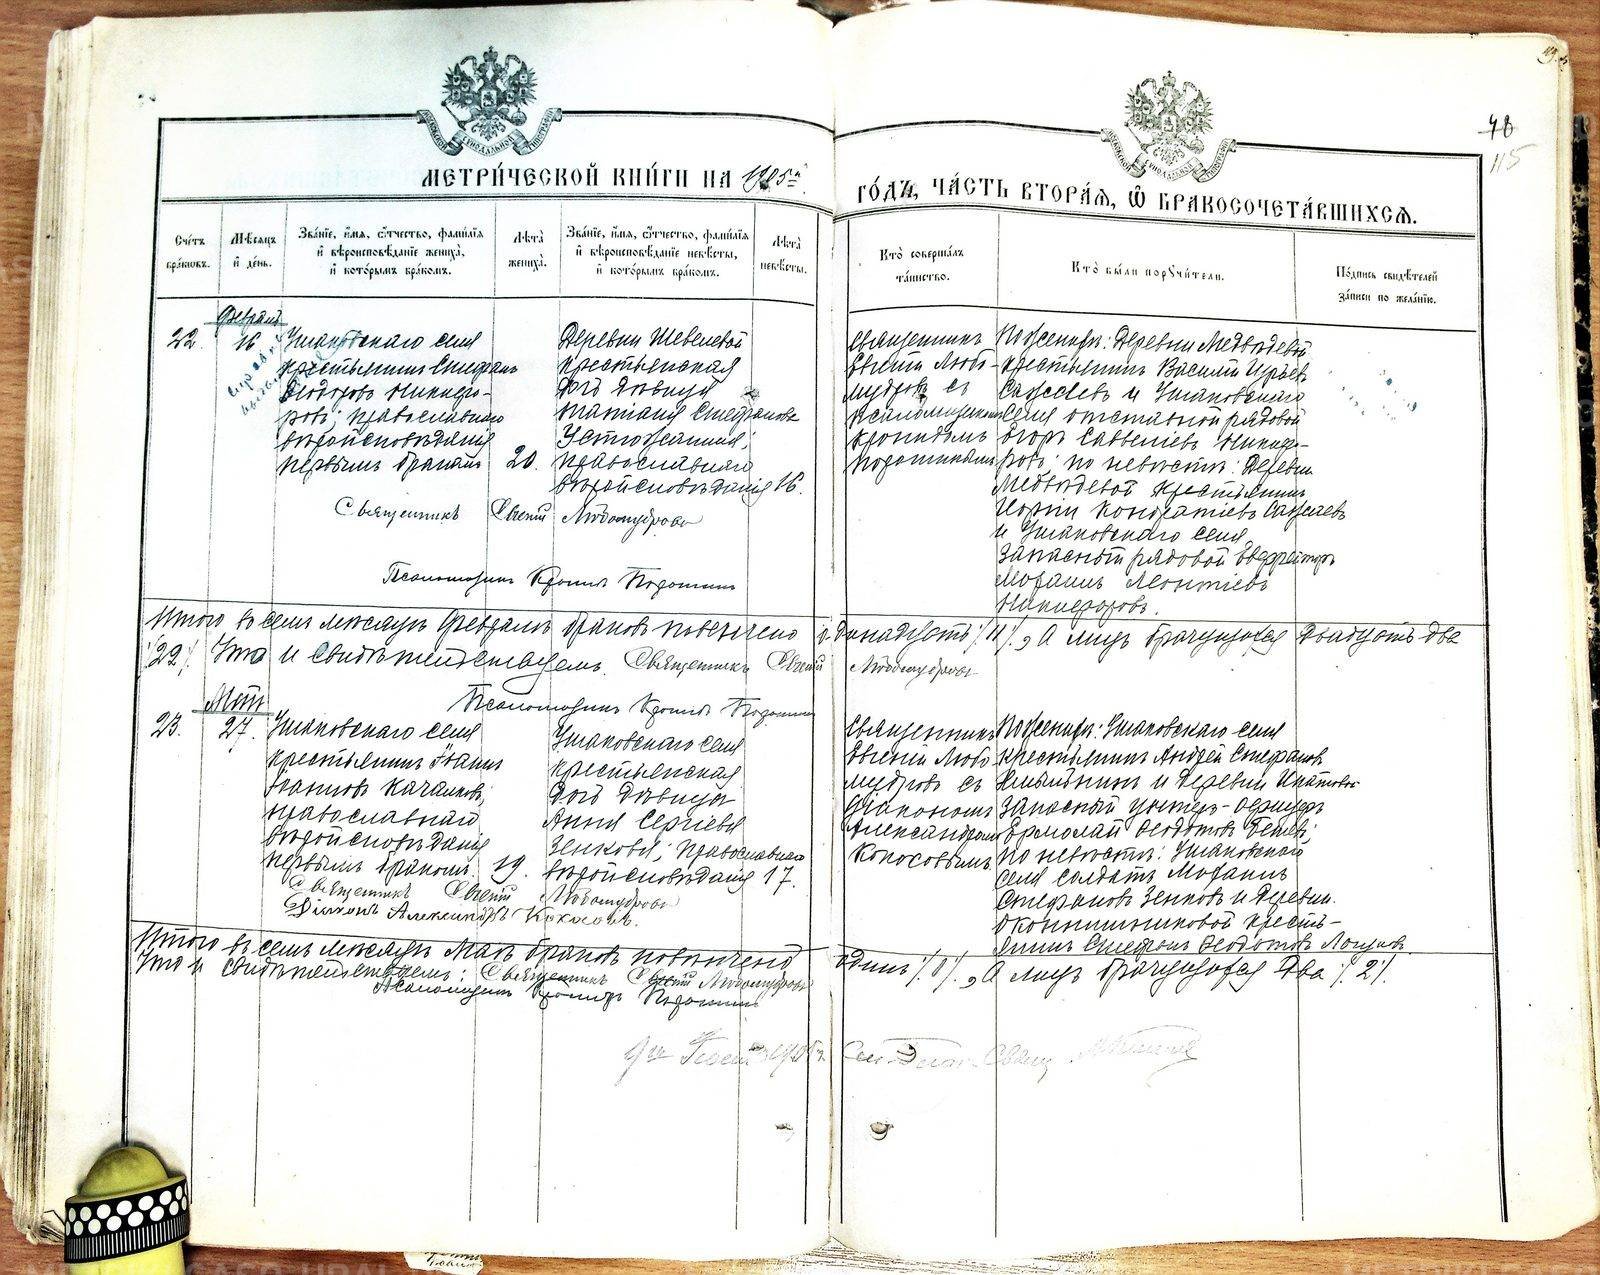 48
115
МЕТРИЧЕСКОЙ КНИГИ НА 1905й
ГОДЪ, ЧАСТЬ ВТОРАЯ, Ѿ БРАКОСОЧЕТАВШИХСЯ.
Счетъ браковъ.
Мѣсяцъ и день.
Званіе, имя, отчество, фамилія
и вѣроисповѣданіе жениха,
и которымъ бракомъ.
Лѣта
жениха.
Званіе, имя, отчество, фамилія
и вѣроисповѣданіе невѣсты,
и которымъ бракомъ.
Лѣта
невѣсты.
Кто совершалъ
таинство.
Кто были поручители.
Подпись свидѣтелей
записи по желанію.
Февраль
22.
16
Ушаковскаго села
крестьянинъ Стефанъ
Ѳеодоровъ Никифо-
ровъ; православнаго
вѣроисповѣданія
первымъ бракомъ
20.
Деревни Шевелевой
крестьянская
дочь дѣвица
Татіана Стефанова
Устюжанина;
православнаго
вѣроисповѣданія
16.
Священникъ
Евгеній Любо-
мудровъ съ
псаломщикомъ
Кронидомъ
По женихѣ: деревни Медвѣдевой
крестьянинъ Василій Юрьевъ
и Ушаковскаго
села отставной рядовой
Егоръ Савельевъ Никифо-
ровъ; по невѣстѣ: деревни
Медвѣдевой крестьянинъ
Кондратіевъ
и Ушаковскаго села
запасный рядовой ефрейторъ
Леонтіевъ
Никифоровъ.
Священникъ Евгеній Любомудровъ
Псаломщикъ Кронидъ
Итого въ семъ мѣсяцѣ Февралѣ браковъ повѣнчано одинадцать /11/, а лицъ брачущихся двадцать два
/22/. Что и свидѣтельствуемъ. Священникъ Евгеній Любомудровъ
Псаломщикъ Кронидъ
Май
23.
27.
Ушаковскаго села
крестьянинъ Іоаннъ
Іоанновъ Качалковъ,
православнаго
вѣроисповѣданія
первымъ бракомъ.
19.
Ушаковскаго села
крестьянская
дочь дѣвица
Анна Сергіева
Зенкова; православнаго
вѣроисповѣданія
17.
Священникъ
Евгеній Любо-
мудровъ съ
діакономъ
Александромъ
Кокосовымъ.
По женихѣ: Ушаковскаго села
крестьянинъ Андрей Стефановъ
и деревни Ипатовой
запасный унтеръ-офицеръ
Ермолай Ѳедотовъ
по невѣстѣ: Ушаковскаго
села солдатъ
Стефановъ Зенковъ и деревни
Оконишниковой кресть-
янинъ Стефанъ Ѳедотовъ
Священникъ Евгеній Любомудровъ
Діаконъ Александръ Кокосовъ.
Итого въ семъ мѣсяцѣ Маѣ браковъ повѣнчано одинъ /1/, а лицъ брачущихся два /2/.
Что и свидѣтельствуемъ: Священникъ Евгеній Любомудровъ
Псаломщикъ Кронидъ